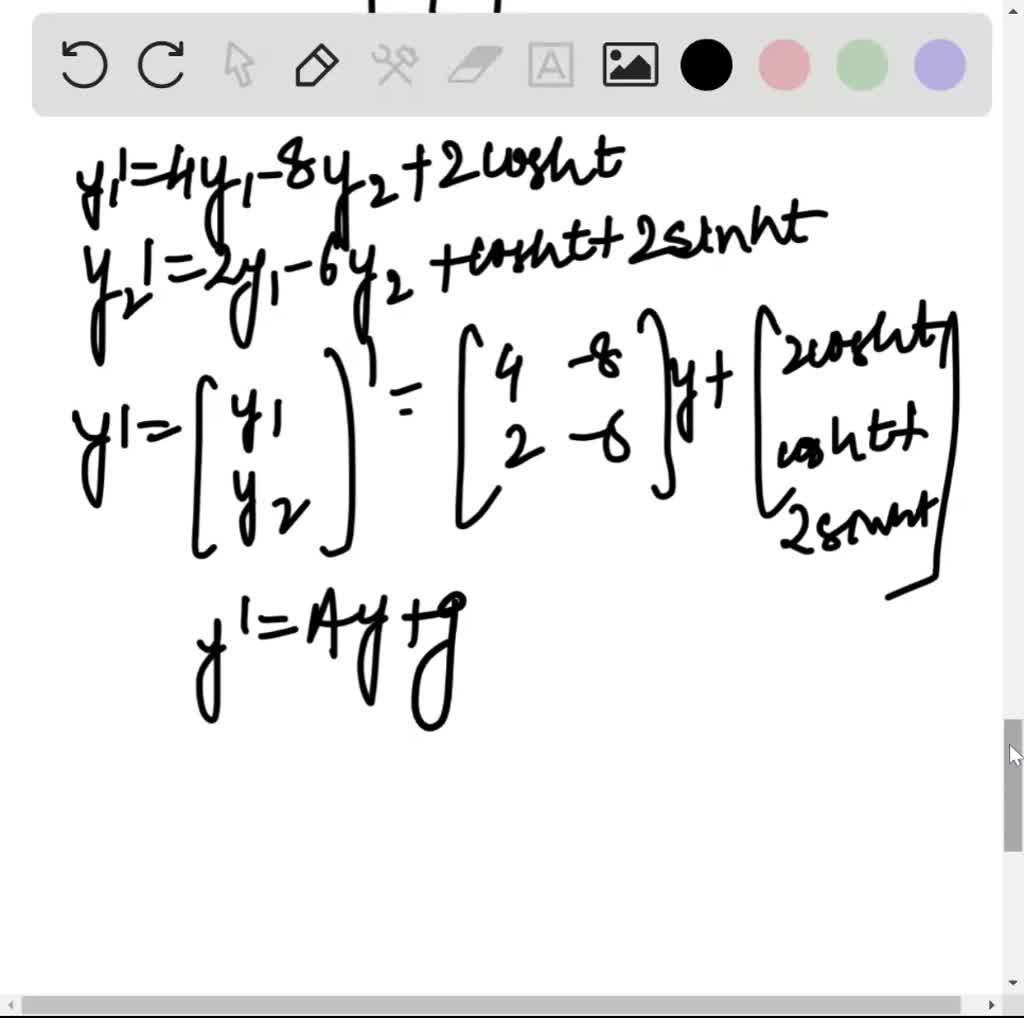 y₁' = 4y₁ - 8y₂ + 2 cosht
y₂' = 2y₁ - 6y₂ + cosht + 2 sinht
y' = [y₁ y₂]' = [4 -8 2 -6] y + [2cosht, cosht + 2sinht]
y' = Ay + g